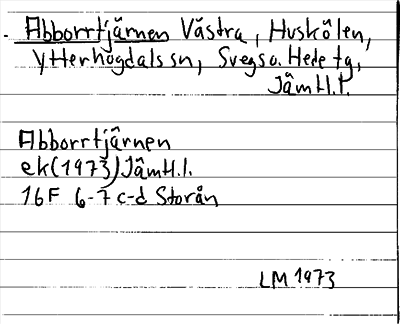 Abborrtjärnen Västra, Huskölen,
Ytterhogdals sn, Svegs o. Hede tg,
Jämtl.l.
Abborrtjärnen
ek (1973) Jämtl.l.
16F 6-7 c-d Storån
LM 1973